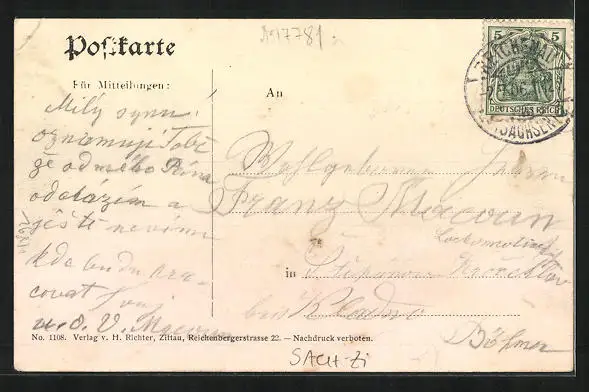 Postkarte
A17781
5 5
REICHENAU
DEUTSCHES REICH
(SACHSEN)
Für Mitteilungen:
An
Milý synu!
oznamuji Tobě
že od mého Pána
odcházím a
ještě nevím
kde budu pra-
covat Tvůj
V. Macoun
Wohlgeboren Herrn
Franz Macoun
Lockomotiv
in
bei Kladno
Böhmen
No. 1108. Verlag v. H. Richter, Zittau, Reichenbergerstrasse 22. — Nachdruck verboten.
SACH-Zi